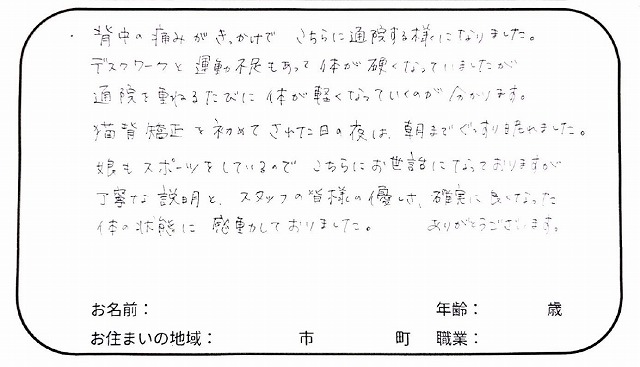 ・背中の痛みがきっかけで こちらに通院する様になりました。
デスクワークと運動不足もあって体が硬くなっていましたが
通院を重ねるたびに体が軽くなっていくのが分かります。
猫背矯正を初めてされた日の夜は、朝までぐっすり眠れました。
娘もスポーツをしているので こちらにお世話になっておりますが
丁寧な説明と、スタッフの皆様の優しさ、確実に良くなった
体の状態に感動しておりました。 ありがとうございます。
お名前： 年齢： 歳
お住まいの地域： 市 町 職業：